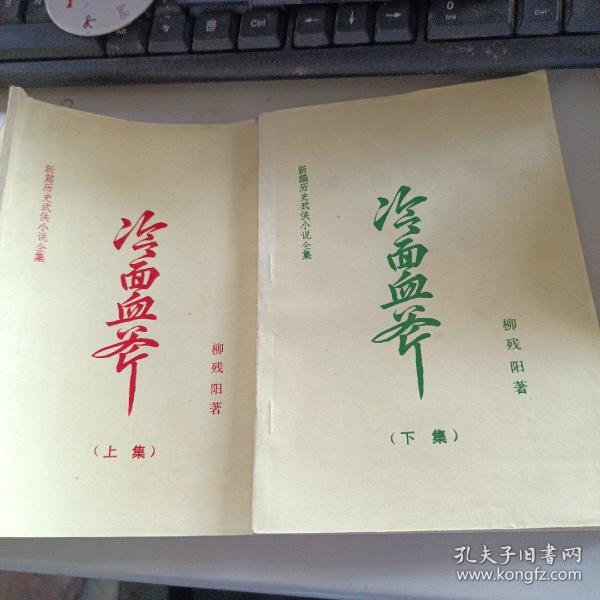 新篇历史武侠小说全集
冷面血斧
柳残阳著
（上 集）
新编历史武侠小说全集
冷面血斧
柳残阳著
（下 集）
Ctrl
Alt
0
Ins
Del
孔夫子旧书网
www.kongfz.com